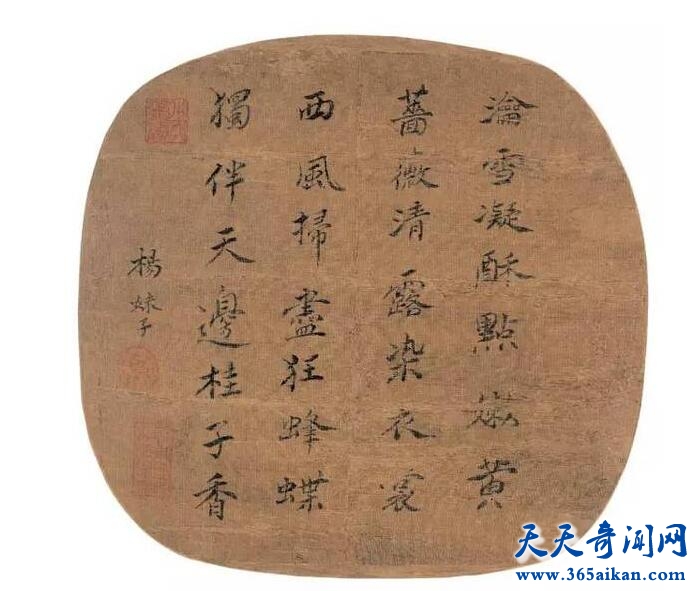 瀹雪凝酥點嫩黄
薔薇清露染衣裳
西風掃盡狂蜂蝶
獨伴天邊桂子香
楊妹子
天天奇闻网
www.365aikan.com